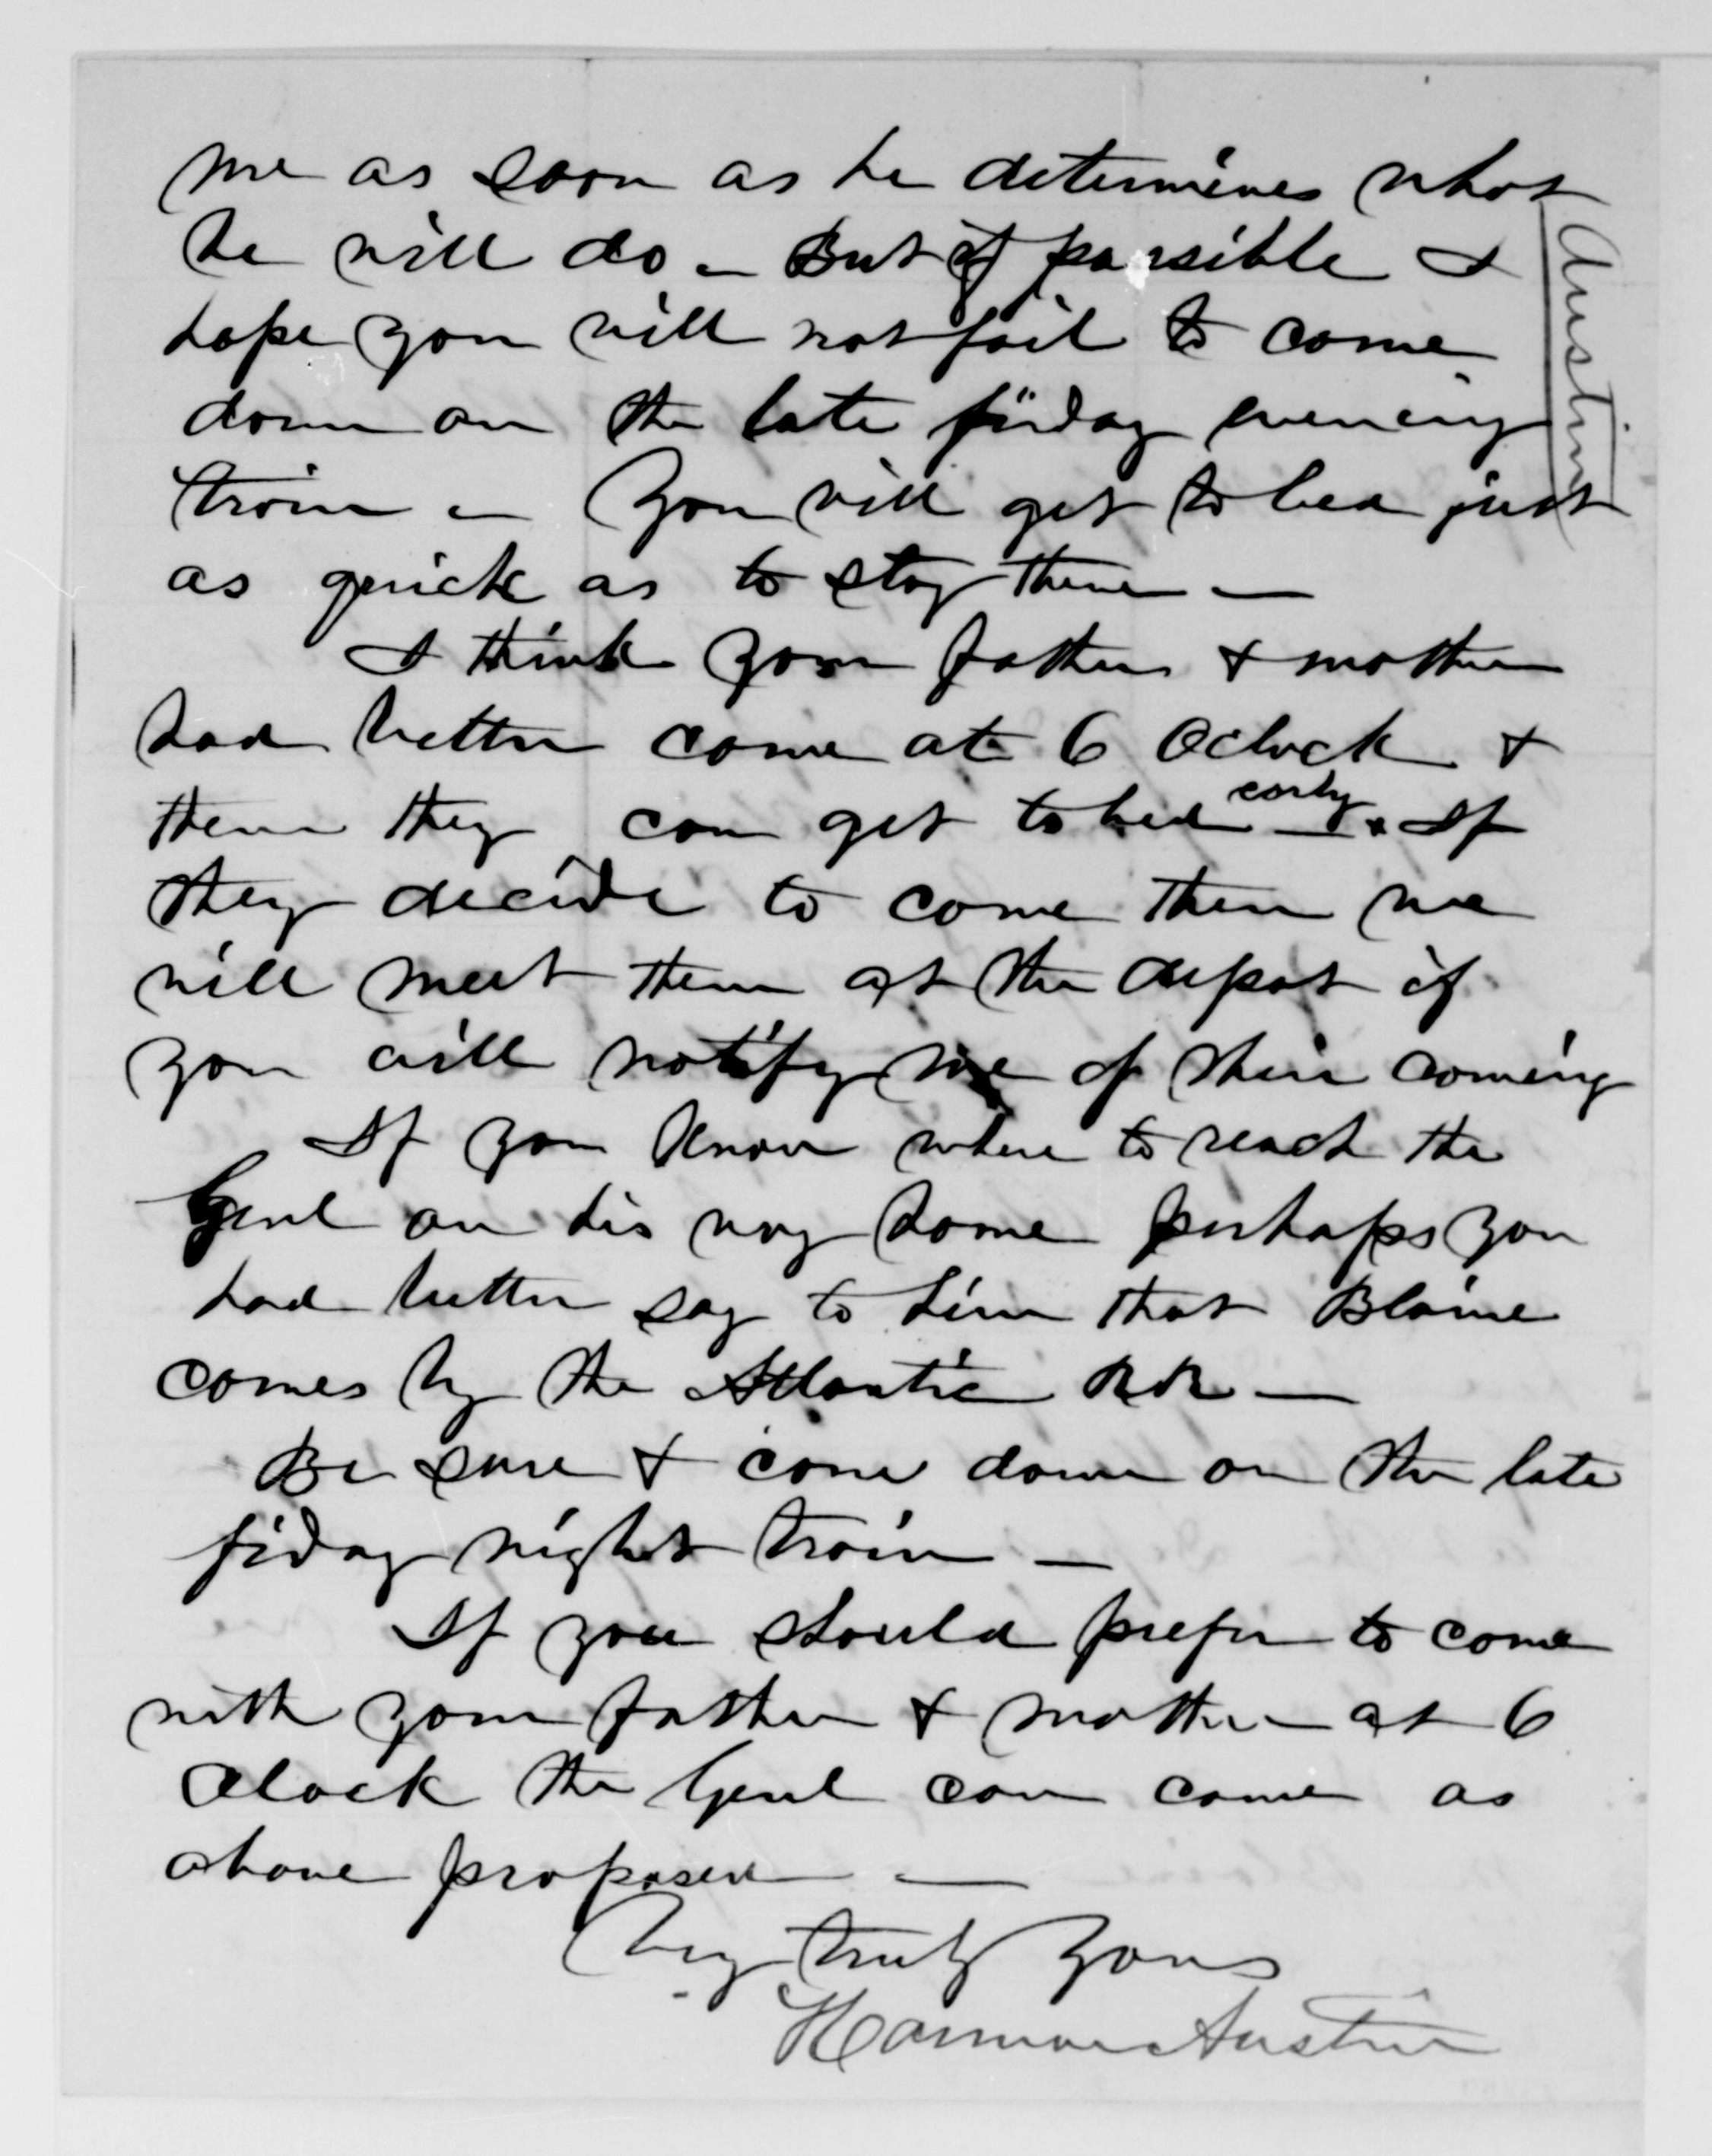 me as soon as he determines what
he will do – But if possible I
hope you will not fail to come
down on the late friday evening
train – You will get to bed just
as quick as to stay there —
I think your father & mother
had better come at 6 Oclock &
then they can get to bed early – If
they decide to come then we
will meet them at the depot if
you will notify me of their coming
If you know where to reach the
Genl on his way home perhaps you
had better say to him that Blaine
comes by the Atlantic RR —
Be sure & come down on the late
fiday night train —
If you should prefer to come
with your father & mother at 6
Oclock the Genl can come as
above proposed —
Very truly yours
Harmon Austin
Austin